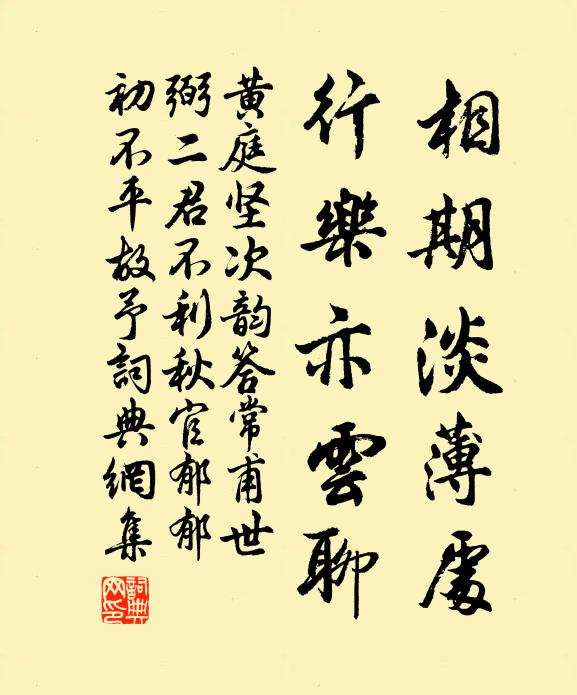 相期淡薄處
行樂亦雲聊
黄庭坚次韵答常甫世
弼二君不利秋官郁郁
初不平故予詞典網集